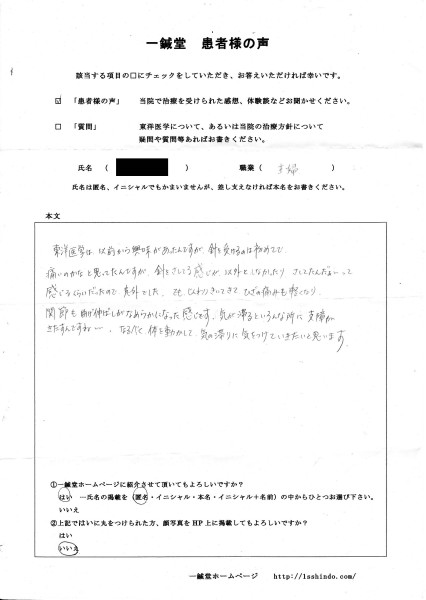 一鍼堂 患者様の声
該当する項目の□にチェックをしていただき、お答えいただければ幸いです。
☑ 「患者様の声」 当院で治療を受けられた感想、体験談などお聞かせください。
□ 「質問」 東洋医学について、あるいは当院の治療方針について
疑問や質問等あればお書きください。
氏名 ( ) 職業 ( 主婦 )
氏名は匿名、イニシャルでもかまいませんが、差し支えなければ本名をお書きください。
本文
東洋医学は、以前から興味があったんですが、針を受けるのは初めてで、
痛いのかなと思ってたんですが、針をさしてる感じが、以外としなかったり さしてたんだぁーって
感じるくらいだったので 意外でした。 でも、じんわりきいてきて、ひざの痛みも軽くなり
関節も曲げ伸ばしがなめらかになった感じです。気が滞るといろんな所に 支障が
きたすんですねー。なるべく 体を動かして、気の滞りに気をつけていきたいと思います。
①一鍼堂ホームページに紹介させて頂いてもよろしいですか?
はい ―氏名の掲載を(匿名・イニシャル・本名・イニシャル+名前)の中からひとつお選び下さい。
いいえ
②上記ではいに丸をつけられた方、顔写真を HP 上に掲載してもよろしいですか?
はい
いいえ
一鍼堂ホームページ http://1sshindo.com/